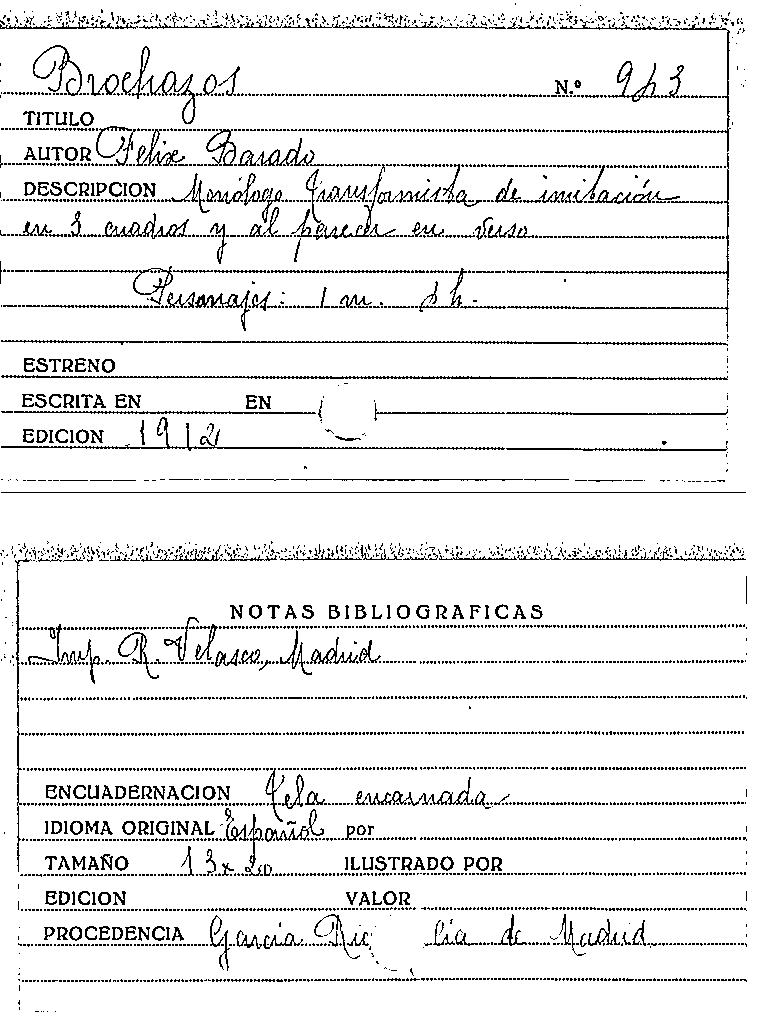 Brochazos N.º 943
TITULO
AUTOR Felix Barado
DESCRIPCION Monólogo transformista de imitación
en 3 cuadros y al parecer en verso
Personajes: 1 m. h.
ESTRENO
ESCRITA EN EN
EDICION 1912
NOTAS BIBLIOGRAFICAS
Imp. R. Velasco, Madrid
ENCUADERNACION Tela encarnada
IDIOMA ORIGINAL Español por
TAMAÑO 13x20 ILUSTRADO POR
EDICION VALOR
PROCEDENCIA García de Madrid